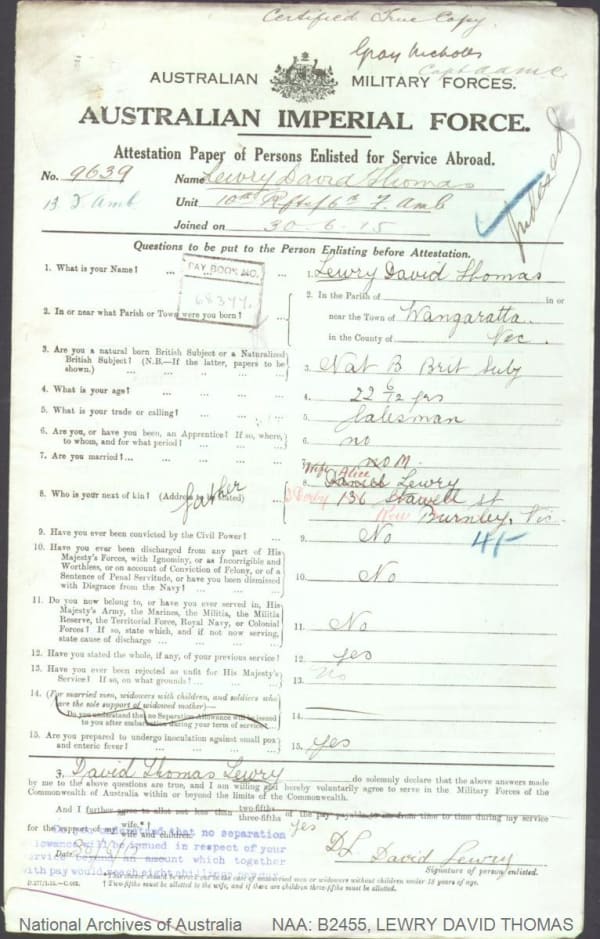 Certified True Copy
Gray Nicholls
Capt aamc
AUSTRALIAN MILITARY FORCES.
AUSTRALIAN IMPERIAL FORCE.
Attestation Paper of Persons Enlisted for Service Abroad.
No. 9639 Name Lewry David Thomas
13 F Amb Unit 10th Rfts/6th F. Amb
Joined on 30-6-15
Questions to be put to the Person Enlisting before Attestation.
1. What is your Name? ... 1. Lewry David Thomas
PAY BOOK NO.
68344.
2. In or near what Parish or Town were you born? ... 2. In the Parish of in or
near the Town of Wangaratta
in the County of Vic.
3. Are you a natural born British Subject or a Naturalized
British Subject? (N.B.—If the latter, papers to be
shown.) 3. Nat B Brit Subj
4. What is your age? ... 4. 22 6/12 yrs
5. What is your trade or calling? ... 5. Salesman
6. Are you, or have you been, an Apprentice? If so, where,
to whom, and for what period? 6. no
7. Are you married? ... 7. no M.
8. Who is your next of kin? (Address to be stated) 8. Wife Alice Lewry
father
136 Stawell St
Kew Burnley, Vic
9. Have you ever been convicted by the Civil Power? ... 9. No 4/-
10. Have you ever been discharged from any part of His
Majesty's Forces, with Ignominy, or as Incorrigible and
Worthless, or on account of Conviction of Felony, or of a
Sentence of Penal Servitude, or have you been dismissed
with Disgrace from the Navy? ... 10. No
11. Do you now belong to, or have you ever served in, His
Majesty's Army, the Marines, the Militia, the Militia
Reserve, the Territorial Force, Royal Navy, or Colonial
Forces? If so, state which, and if not now serving,
state cause of discharge 11. No
12. Have you stated the whole, if any, of your previous service? 12. yes
13. Have you ever been rejected as unfit for His Majesty's
Service? If so, on what grounds? ... 13. No
14. (For married men, widowers with children, and soldiers who
are the sole support of widowed mother)—
Do you understand that no Separation Allowance will be issued
to you after embarkation during your term of service? 14.
15. Are you prepared to undergo inoculation against small pox
and enteric fever? ... 15. yes
I, David Thomas Lewry do solemnly declare that the above answers made
by me to the above questions are true, and I am willing and hereby voluntarily agree to serve in the Military Forces of the
Commonwealth of Australia within or beyond the limits of the Commonwealth.
And I further agree to allot not less than two-fifths
three-fifths of the pay payable to me from time to time during my service
for the support of my wife.*†
wife and children. yes
that no separation
allowance will be issued in respect of your
service beyond an amount which together
with pay would reach eight shillings per day
Date
DL David Lewry
Signature of person enlisted.
* This clause should be struck out in the case of unmarried men or widowers without children under 18 years of age.
† Two-fifths must be allotted to the wife, and if there are children three-fifths must be allotted.
National Archives of Australia NAA: B2455, LEWRY DAVID THOMAS